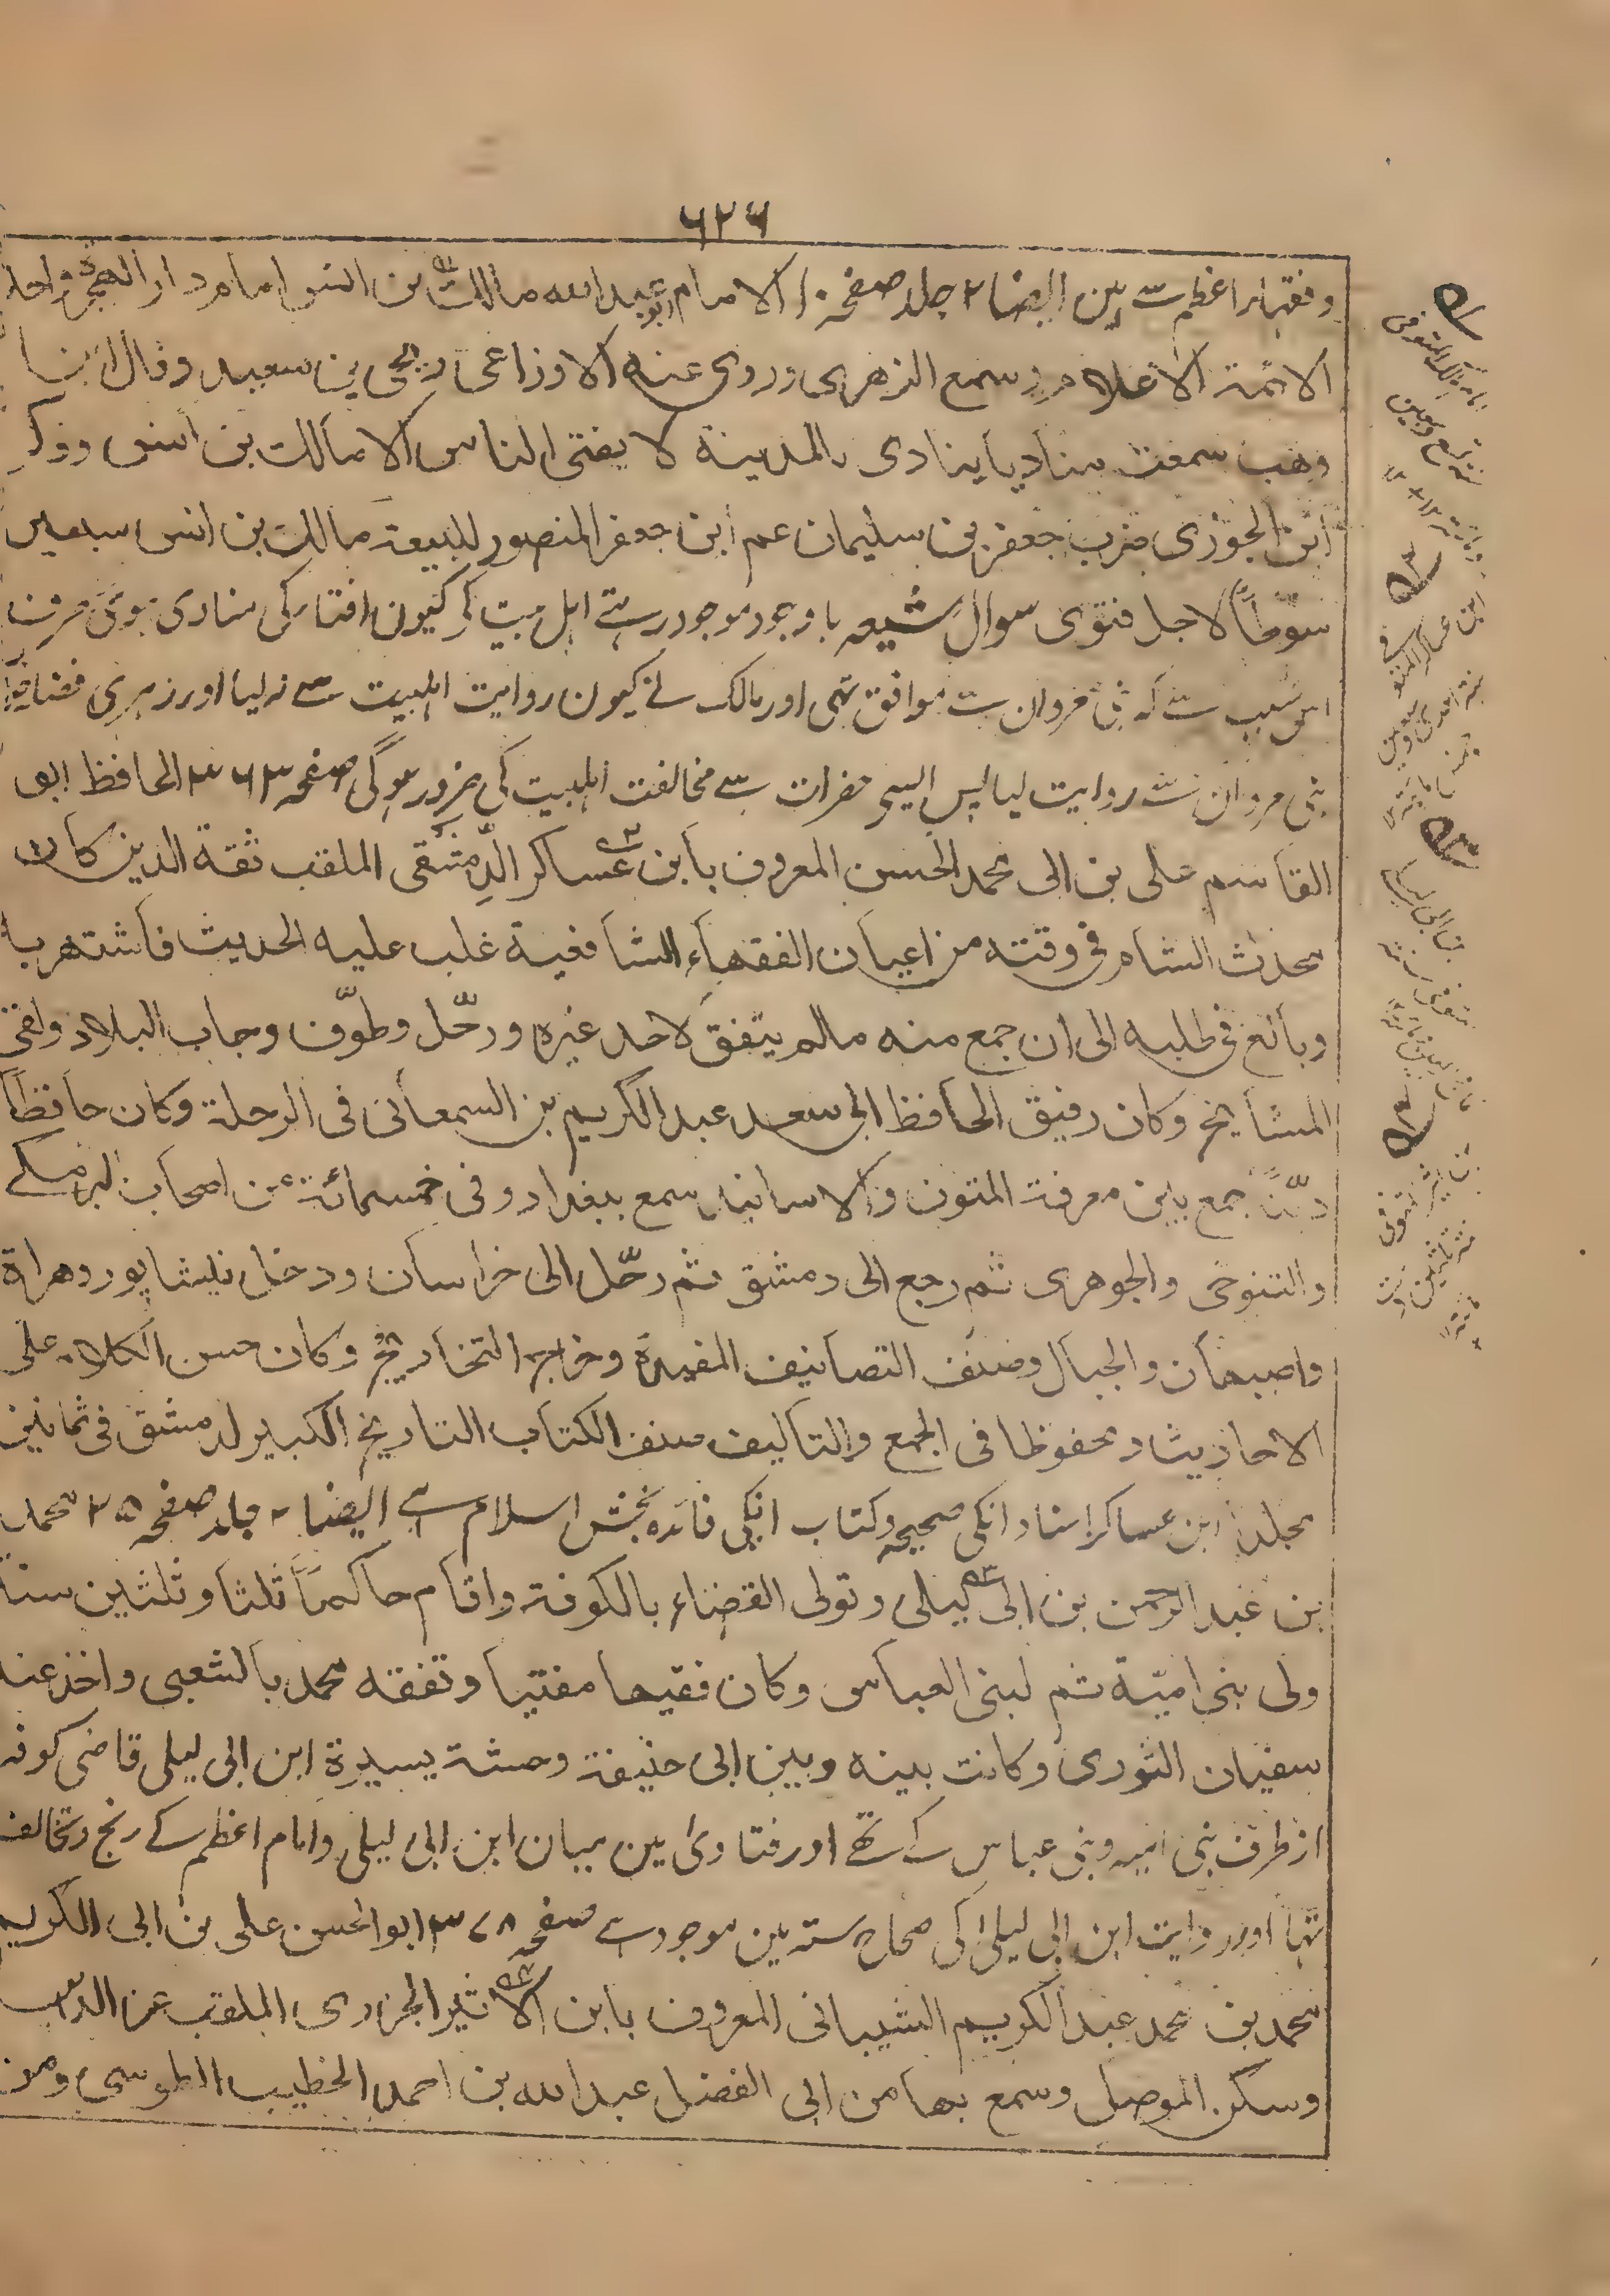 ٦٢٦
وفقہاء اعظم سے ہین ایضا ٢ جلد صفحہ ١٠ الامام ابو عبد الله مالك بن انس امام دار الهجرة واحد
الائمة الاعلام وسمع الزهرى وروى عنه الاوزاعى ويحيى بن سعيد وقال ابن
وهب سمعت مناديا ينادى بالمدينة لا يفتى الناس الا مالك بن انس وذكر
ابن الجوزى ضرب جعفر بن سليمان عم ابن جعفر المنصور للبيعة مالك بن انس سبعين
سوطاً لاجل فتوى سوال شیعہ باوجود موجود رہتے اہل بیت کے کیون افتا کی منادی ہوئی صرف
اس سبب سے کہ بنی مروان سے موافق تہی اور مالک نے کیون روایت اہلبیت سے نہ لیا اور زہری
بنی مروان سے روایت لیا پس ایسے حضرات سے مخالفت اہلبیت کی ضرور ہوگی صفحہ ٤٦٣ الحافظ ابو
القاسم على بن ابى محمد الحسن المعروف بابن عساكر الدمشقى الملقب ثقة الدين كان
محدث الشام فى وقته من اعيان الفقهاء الشافعية غلب عليه الحديث فاشتهر با
وبالغ فى طلبه الى ان جمع منه مالم يتفق لاحد غيره ورحّل وطوّف وجاب البلاد ولقى
المشايخ وكان رفيق الحافظ ابى سعد عبد الكريم بن السمعانى فى الرحلة وكان حافظاً
ديّناً جمع بين معرفة المتون والاسانيد سمع ببغداد وفى خمسمائة من اصحاب البرمكے
والتنوخى والجوهرى ثم رجع الى دمشق ثم رحّل الى خراسان ودخل نيشاپور وهراة
واصبهان والجبال وصنف التصانيف المفيدة وخراج التخاريج وكان حسن الكلام على
الاحاديث ومحفوظا فى الجمع والتاليف صنف الكتاب التاريخ الكبير لدمشق فى ثمانين
مجلد ابن عساکر اسناد انکی صحیح وکتاب انکی فائدہ بخش اسلام ہے ایضا ٢ جلد صفحہ ٢٥ محمد
بن عبد الرحمن بن ابى ليلى وتولى القضاء بالكوفة واقام حاكماً ثلثا وثلثين سنة
ولى بنى اميّة ثم لبنى العباس وكان فقيها مفتيا وتفقه محمد بالشعبى واخذ عنه
سفيان الثورى وكانت بينه وبين ابى حنيفة وحشة يسيرة ابن ابی لیلی قاضی کوفہ
از طرف بنی امیہ وبنی عباس کے تھے اور فتاوی مین میان ابن ابی لیلی وامام اعظم کے رنج وتخالف
تہا اور روایت ابن ابی لیلی کی صحاح ستہ مین موجود ہے صفحہ ٣٧٨ ابو الحسن على بن ابى الكريم
محمد بن محمد عبد الكريم الشيبانى المعروف بابن الاثير الجزرى الملقب عز الدين
وسكن الموصل وسمع بها من ابى الفضل عبد الله بن احمد الخطيب الطوسى ومن